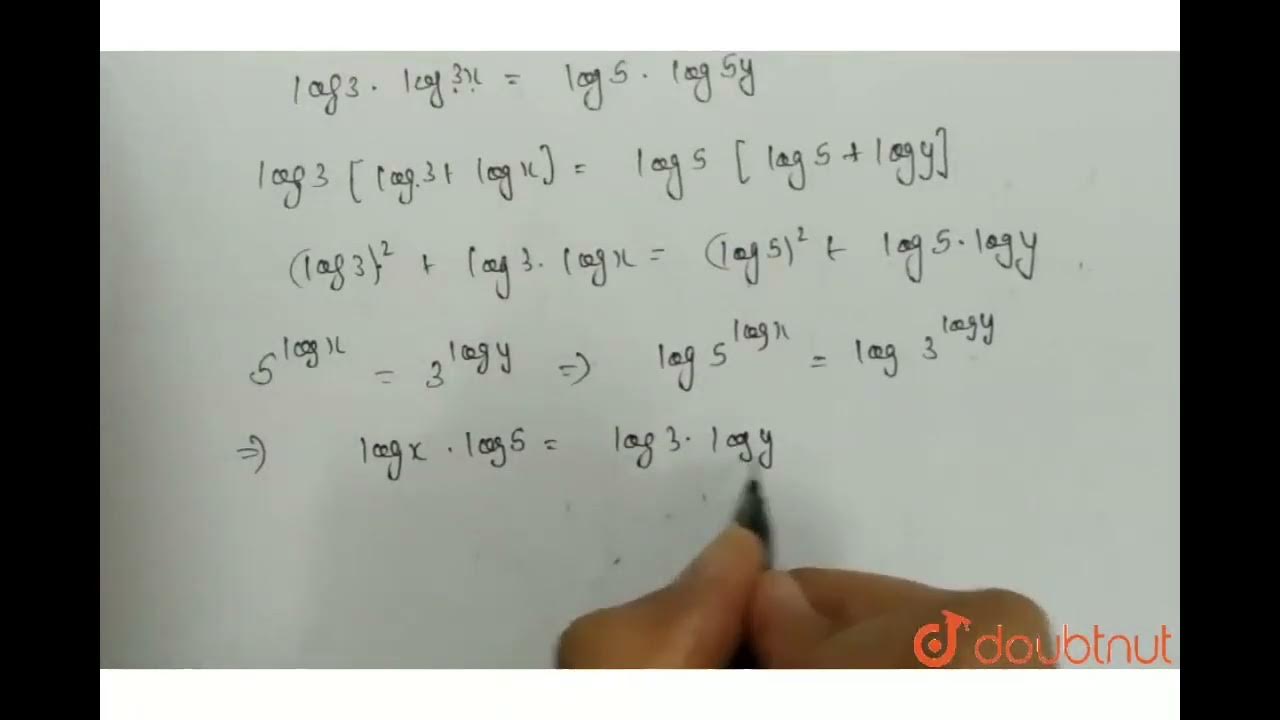 log 3 · log 3x = log 5 · log 5y
log 3 [log 3 + log x] = log 5 [log 5 + log y]
(log 3)² + log 3 · log x = (log 5)² + log 5 · log y
5^{log x} = 3^{log y} ⇒ log 5^{log x} = log 3^{log y}
⇒ log x · log 5 = log 3 · log y
doubtnut